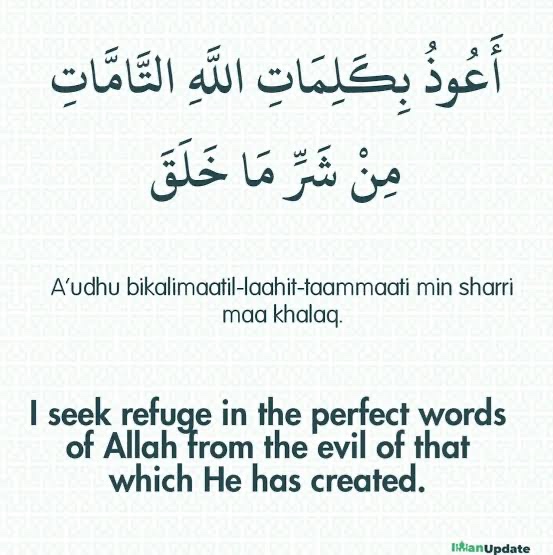 أَعُوذُ بِكَلِمَاتِ اللَّهِ التَّامَّاتِ
مِنْ شَرِّ مَا خَلَقَ
A'udhu bikalimaatil-laahit-taammaati min sharri
maa khalaq.
I seek refuge in the perfect words
of Allah from the evil of that
which He has created.
ImanUpdate